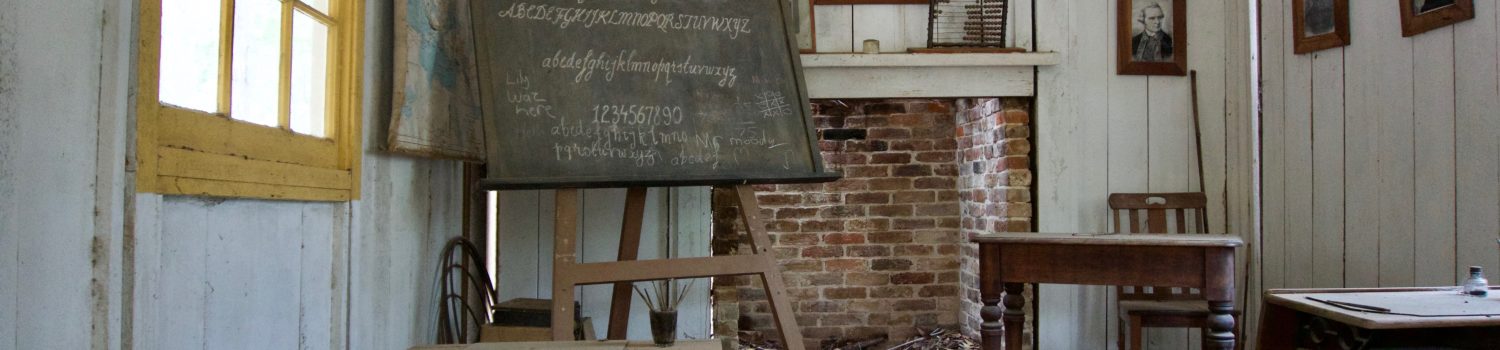 ABCDEFGHIJKLMNOPQRSTUVWXYZ
abcdefghijklmnopqrstuvwxyz
Lily
War
here
1234567890
abcdefghijklmno
pqrstuvwxyz
Mr moody
75
abcdef